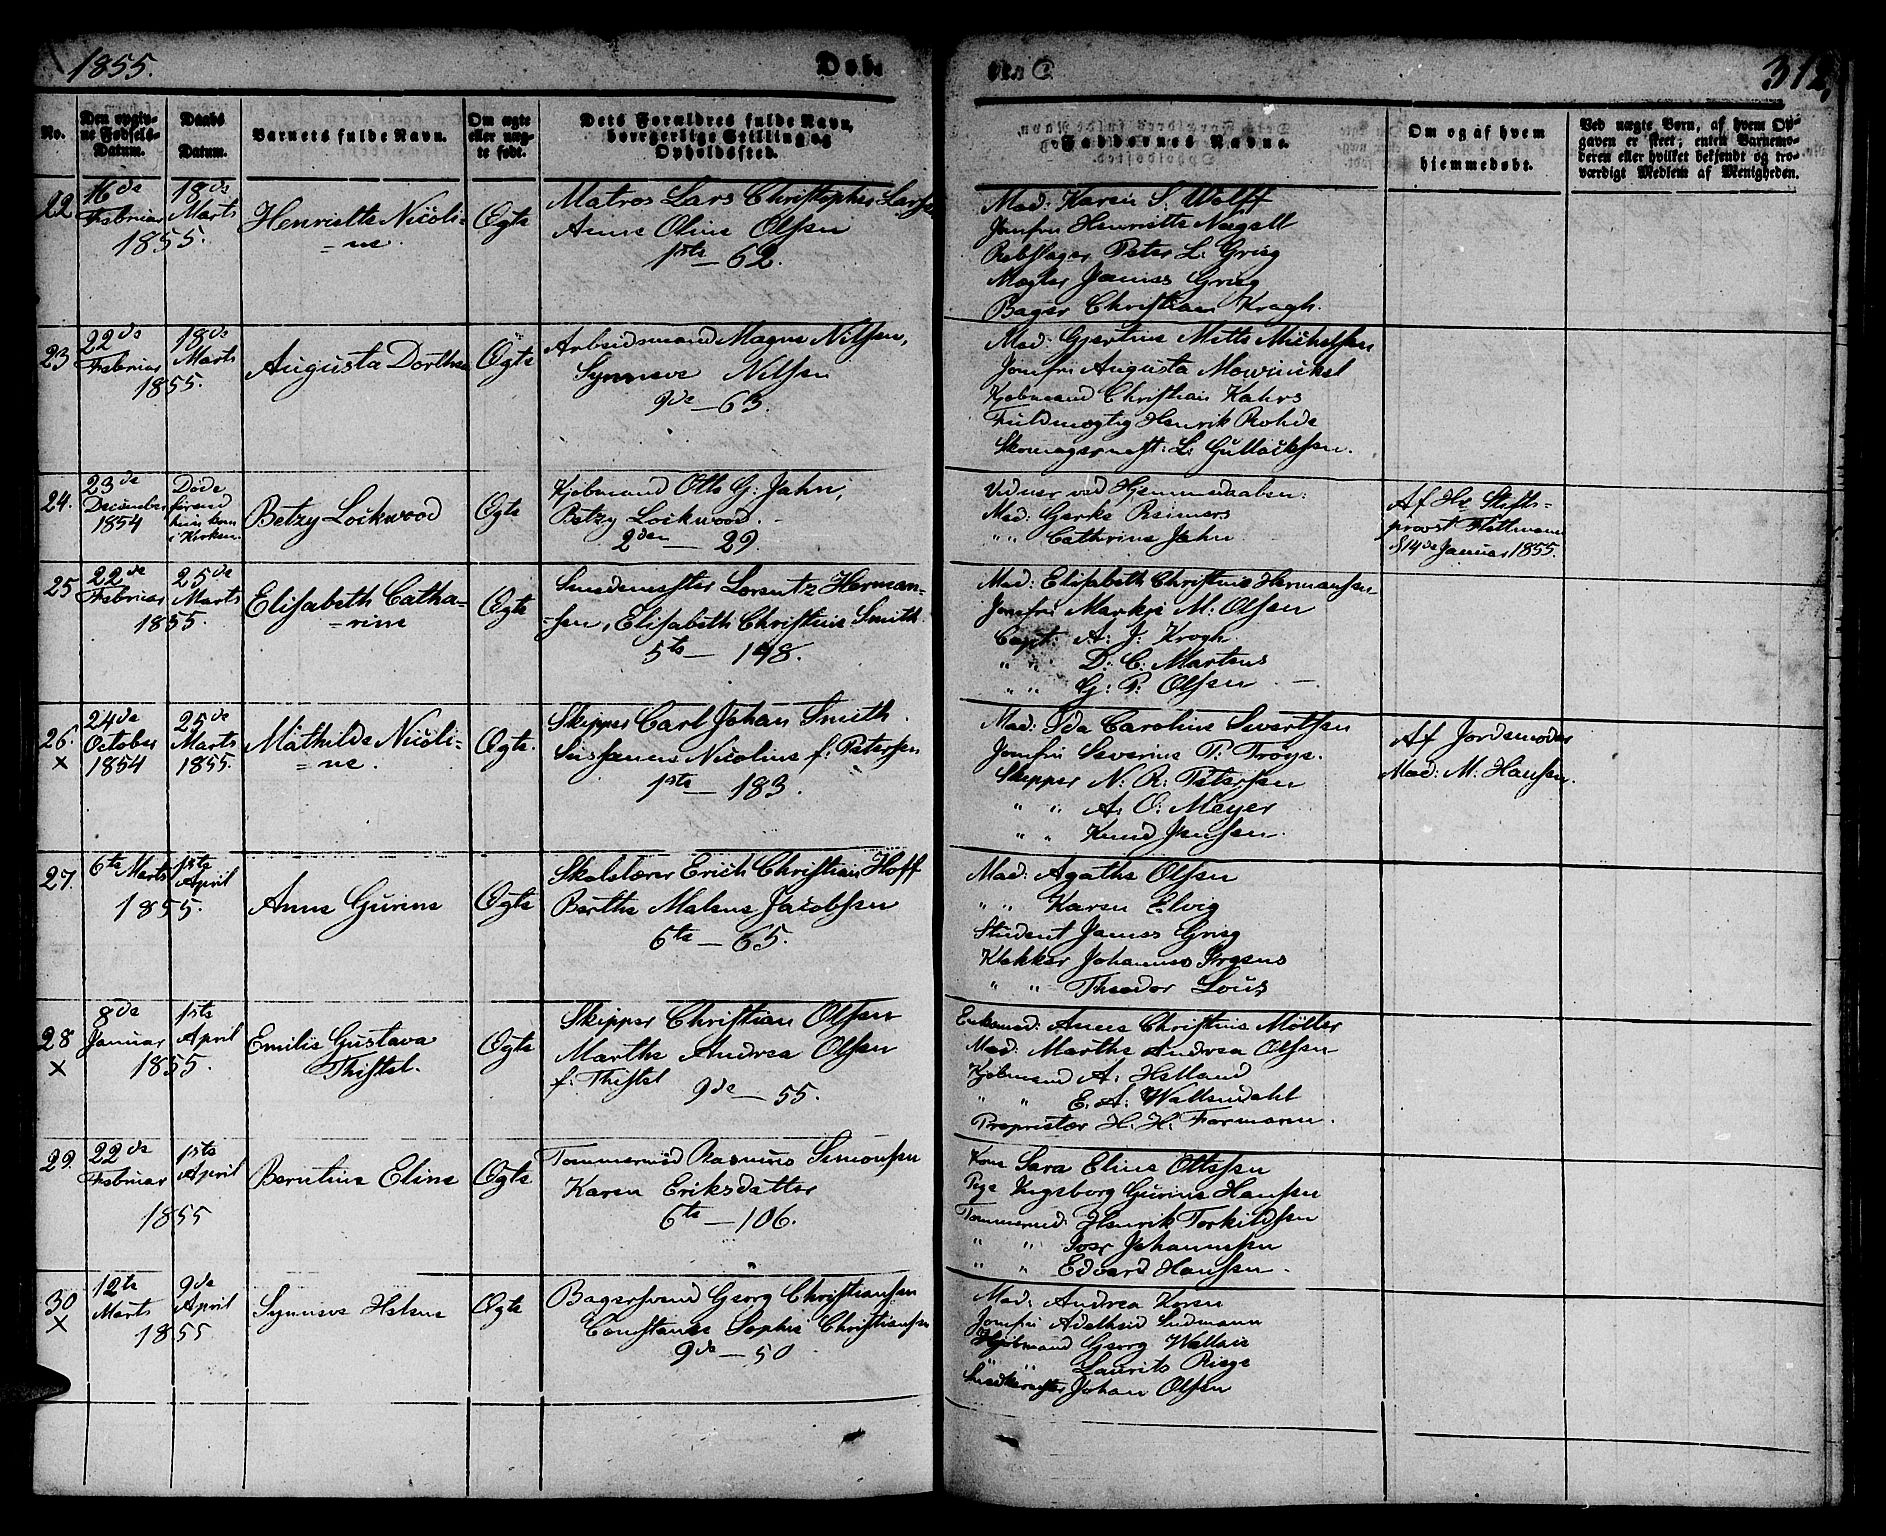 1855.
Døb.
312.
No.
Den opgiv-
ne Fødsels-
Datum.
Daabs
Datum.
Barnets fulde Navn.
Om ægte
eller uæg-
te født.
Dets Forældres fulde Navn,
borgerlige Stilling og
Opholdssted.
Faddernes Navne.
Om og af hvem
hjemmedøbt.
Ved uægte Børn, af hvem Op-
gaven er skeet; enten Barnemo-
deren eller hvilket bekjendt og tro-
værdigt Medlem af Menigheden.
22
16de
Februar
18de
Marts
1855.
Henriette Nicoli-
=ne.
Ægte
Matros Lars Christopher Larsen
Anne Oline Olsen
1ste — 62.
Mad: Karen S. Wolff
Jomfru Henriette Nagell
Rebslager Peter L. Grieg
Mægler James Grieg
Bager Christian Kragh.
23
22de
Februar
18de
Marts
1855.
Augusta Dorthea
Ægte
Arbeidsmand Magne Nilsen,
Synneve Nilsen
9de — 63.
Mad: Gjertine Mette Michelsen
Jomfru Augusta Mowinckel
Kjøbmand Christian Kahrs
Fuldmægtig Henrik Rohde
Skomagermest: L: Gullacksen.
24.
23de
December
1854
Døde
førend
hun kom
i Kirken.
Betzy Lockwood
Ægte
Kjøbmand Otto G. Jahn,
Betzy Lockwood. -
2den — 29.
Vidner ved Hjemmedaaben:
Mad: Gerke Reimers
" " Cathrine Jahn
Af Hr. Stifts-
provst
d 14de Januar 1855.
25
22de
Februar
25de
Marts
1855.
Elisabeth Catha-
-rine
Ægte
Smedemester Lorentz Herman-
-sen, Elisabeth Christine Smith.
5te — 148.
Mad: Elisabeth Christine Hermansen
Jomfru M. Olsen
Capt: A: J: Krogh.
" " D: C: Martens
" " G: P: Olsen -
26.
×
24de
October
1854
25de
Marts
1855.
Mathilde Nicoli-
=ne.
Ægte.
Skipper Carl Johan Smith.
Susanne Nicoline f: Petersen
1ste — 183.
Mad: Ida Caroline Sivertsen
Jomfru Severine P: Trøye.
Skipper N: R: Petersen
" " A: O: Meyer
" " Knud Jansen
Af Jordemoder
Mad: M: Hansen.
27.
6te Marts
1ste
April
1855.
Anne Gurine
Ægte
Skolelærer Erich Christian Hoff
Berthe Malene Jacobsen
6te — 65.
Mad: Agathe Olsen
" " Karen Elvig
Student James Grieg
Klokker Johannes
" " Theodor Lous
28
×
8de
Januar
1ste
April
1855.
Emilie Gustava
Thistel.
Ægte
Skipper Christian Olsen
Marthe Andrea Olsen
f: Thistel
9de — 55.
Enkemad: Anne Christine Möller
Mad: Marthe Andrea Olsen
Kjøbmand A: Helland
" " E. A: Wallendahl
Proprietær H. H: Formann.
29.
22de
Februar
1ste
April
1855
Berntine Eline
Ægte
Tømmermd Rasmus Simonsen
Karen Eriksdatter
6te — 106.
Kone Sara Eline Ottesen
Pige Ingeborg Gurine Hansen
Tømmermd: Henrik Torkildsen
" " Iver Johannesen
" " Edvard Hansen -
30
×
12te
Marts
9de
April
1855
Synneve Helene
Ægte
Bagersvend Georg Christiansen
Constance Sophie Christiansen
9de — 50
Mad: Andrea Koren
Jomfru Adelheid Sudmann
Kjøbmand Georg Wallace
" " Laurits Riege
Snedkermester Johan Olsen